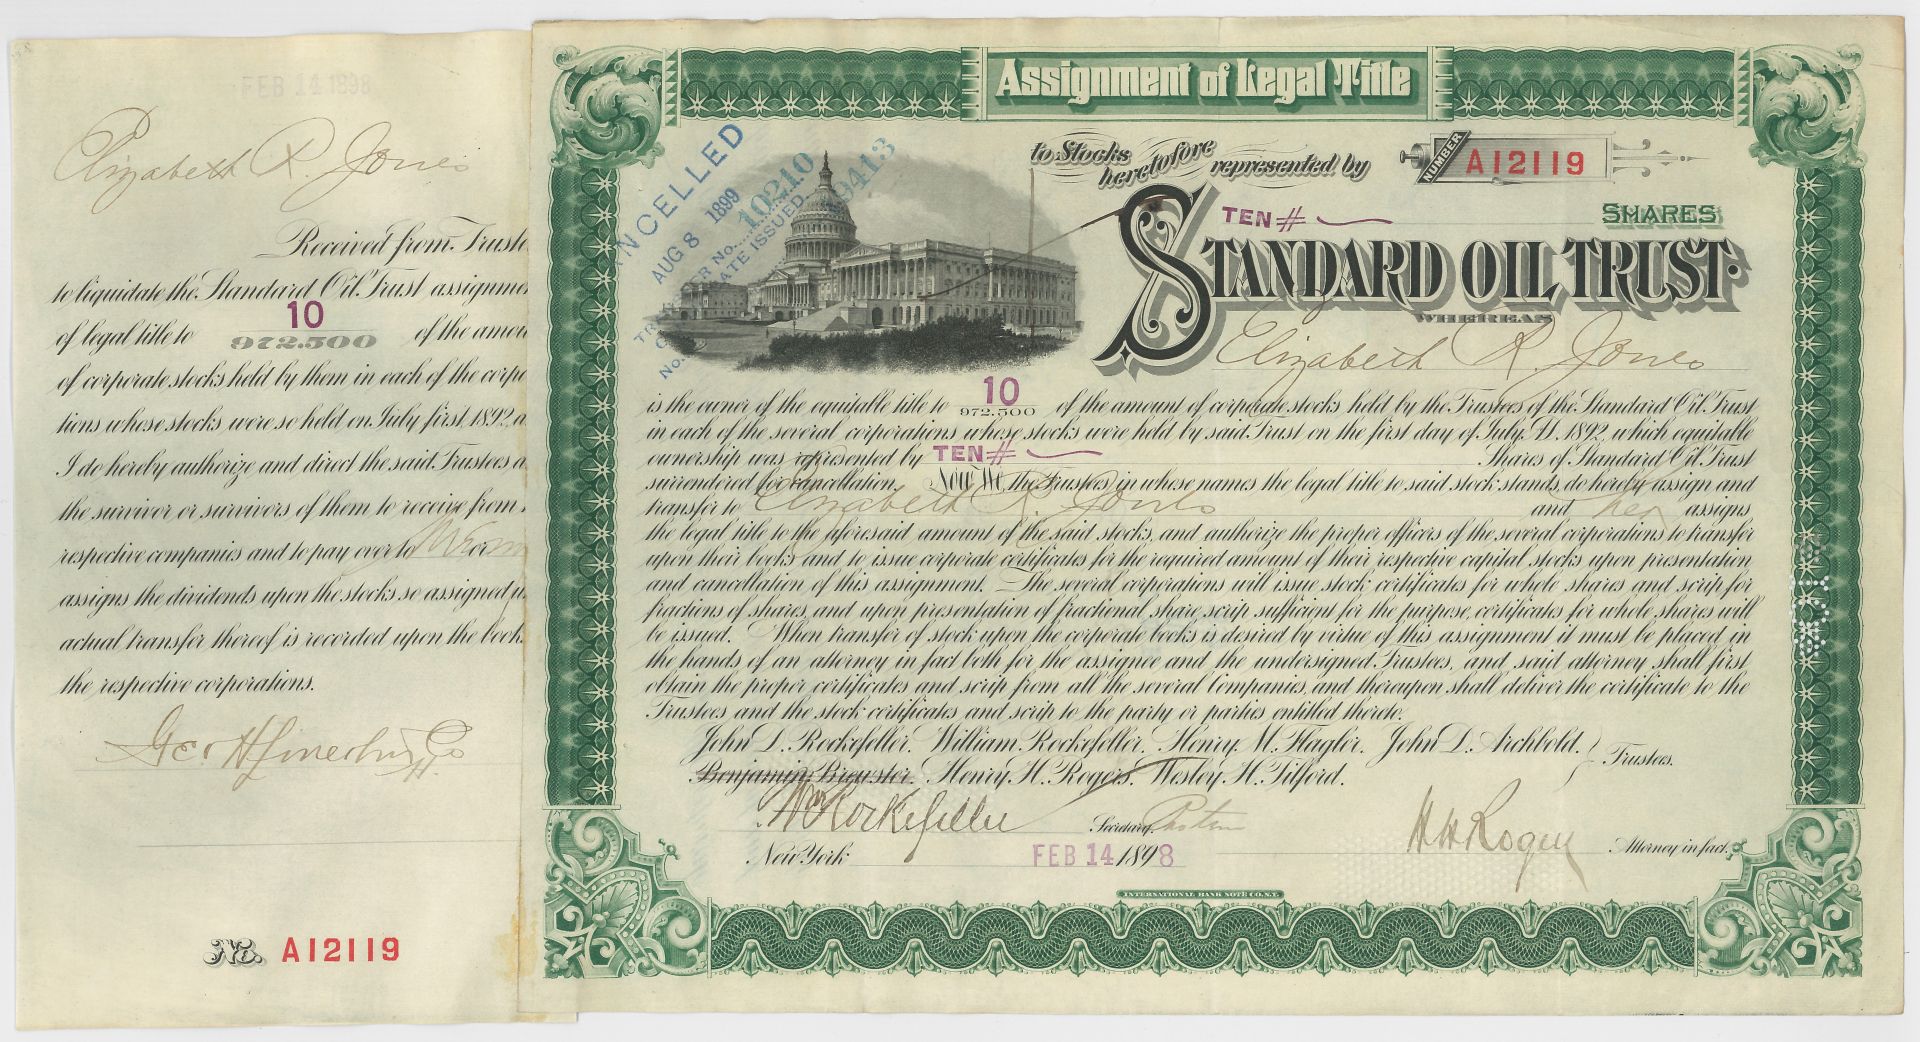 FEB 14 1898
Elizabeth R. Jones
Received from Truste
to liquidate the Standard Oil Trust assignme
of legal title to 10 / 972.500 of the amou
of corporate stocks held by them in each of the corpo
tions whose stocks were so held on July first, 1892, a
I do hereby authorize and direct the said Trustees a
the survivor or survivors of them to receive from
respective companies and to pay over to or
assigns the dividends upon the stocks so assigned u
actual transfer thereof is recorded upon the book
the respective corporations.
No. A12119
Assignment of Legal Title
to Stocks heretofore represented by
NUMBER A12119
TEN # SHARES
STANDARD OIL TRUST.
WHEREAS
Elizabeth R. Jones
NCELLED
AUG 8 1899
10210
ATE ISSUED
9413
No.
is the owner of the equitable title to 10 / 972.500 of the amount of corporate stocks held by the Trustees of the Standard Oil Trust
in each of the several corporations whose stocks were held by said Trust on the first day of July, A. D. 1892, which equitable
ownership was represented by TEN # Shares of Standard Oil Trust
surrendered for cancellation. Now We the Trustees in whose names the legal title to said stock stands, do hereby assign and
transfer to Elizabeth R. Jones and her assigns
the legal title to the aforesaid amount of the said stocks, and authorize the proper officers of the several corporations to transfer
upon their books and to issue corporate certificates for the required amount of their respective capital stocks upon presentation
and cancellation of this assignment. The several corporations will issue stock certificates for whole shares and scrip for
fractions of shares, and upon presentation of fractional share scrip sufficient for the purpose, certificates for whole shares will
be issued. When transfer of stock upon the corporate books is desired by virtue of this assignment it must be placed in
the hands of an attorney in fact both for the assignee and the undersigned Trustees, and said attorney shall first
obtain the proper certificates and scrip from all the several Companies, and thereupon shall deliver the certificate to the
Trustees and the stock certificates and scrip to the party or parties entitled thereto.
John D. Rockefeller, William Rockefeller, Henry M. Flagler, John D. Archbold,
Benjamin Brewster, Henry H. Rogers, Wesley H. Tilford. Trustees.
Wm Rockefeller Secretary H H Rogers Attorney in fact.
New York FEB 14 1898
INTERNATIONAL BANK NOTE CO. N.Y.